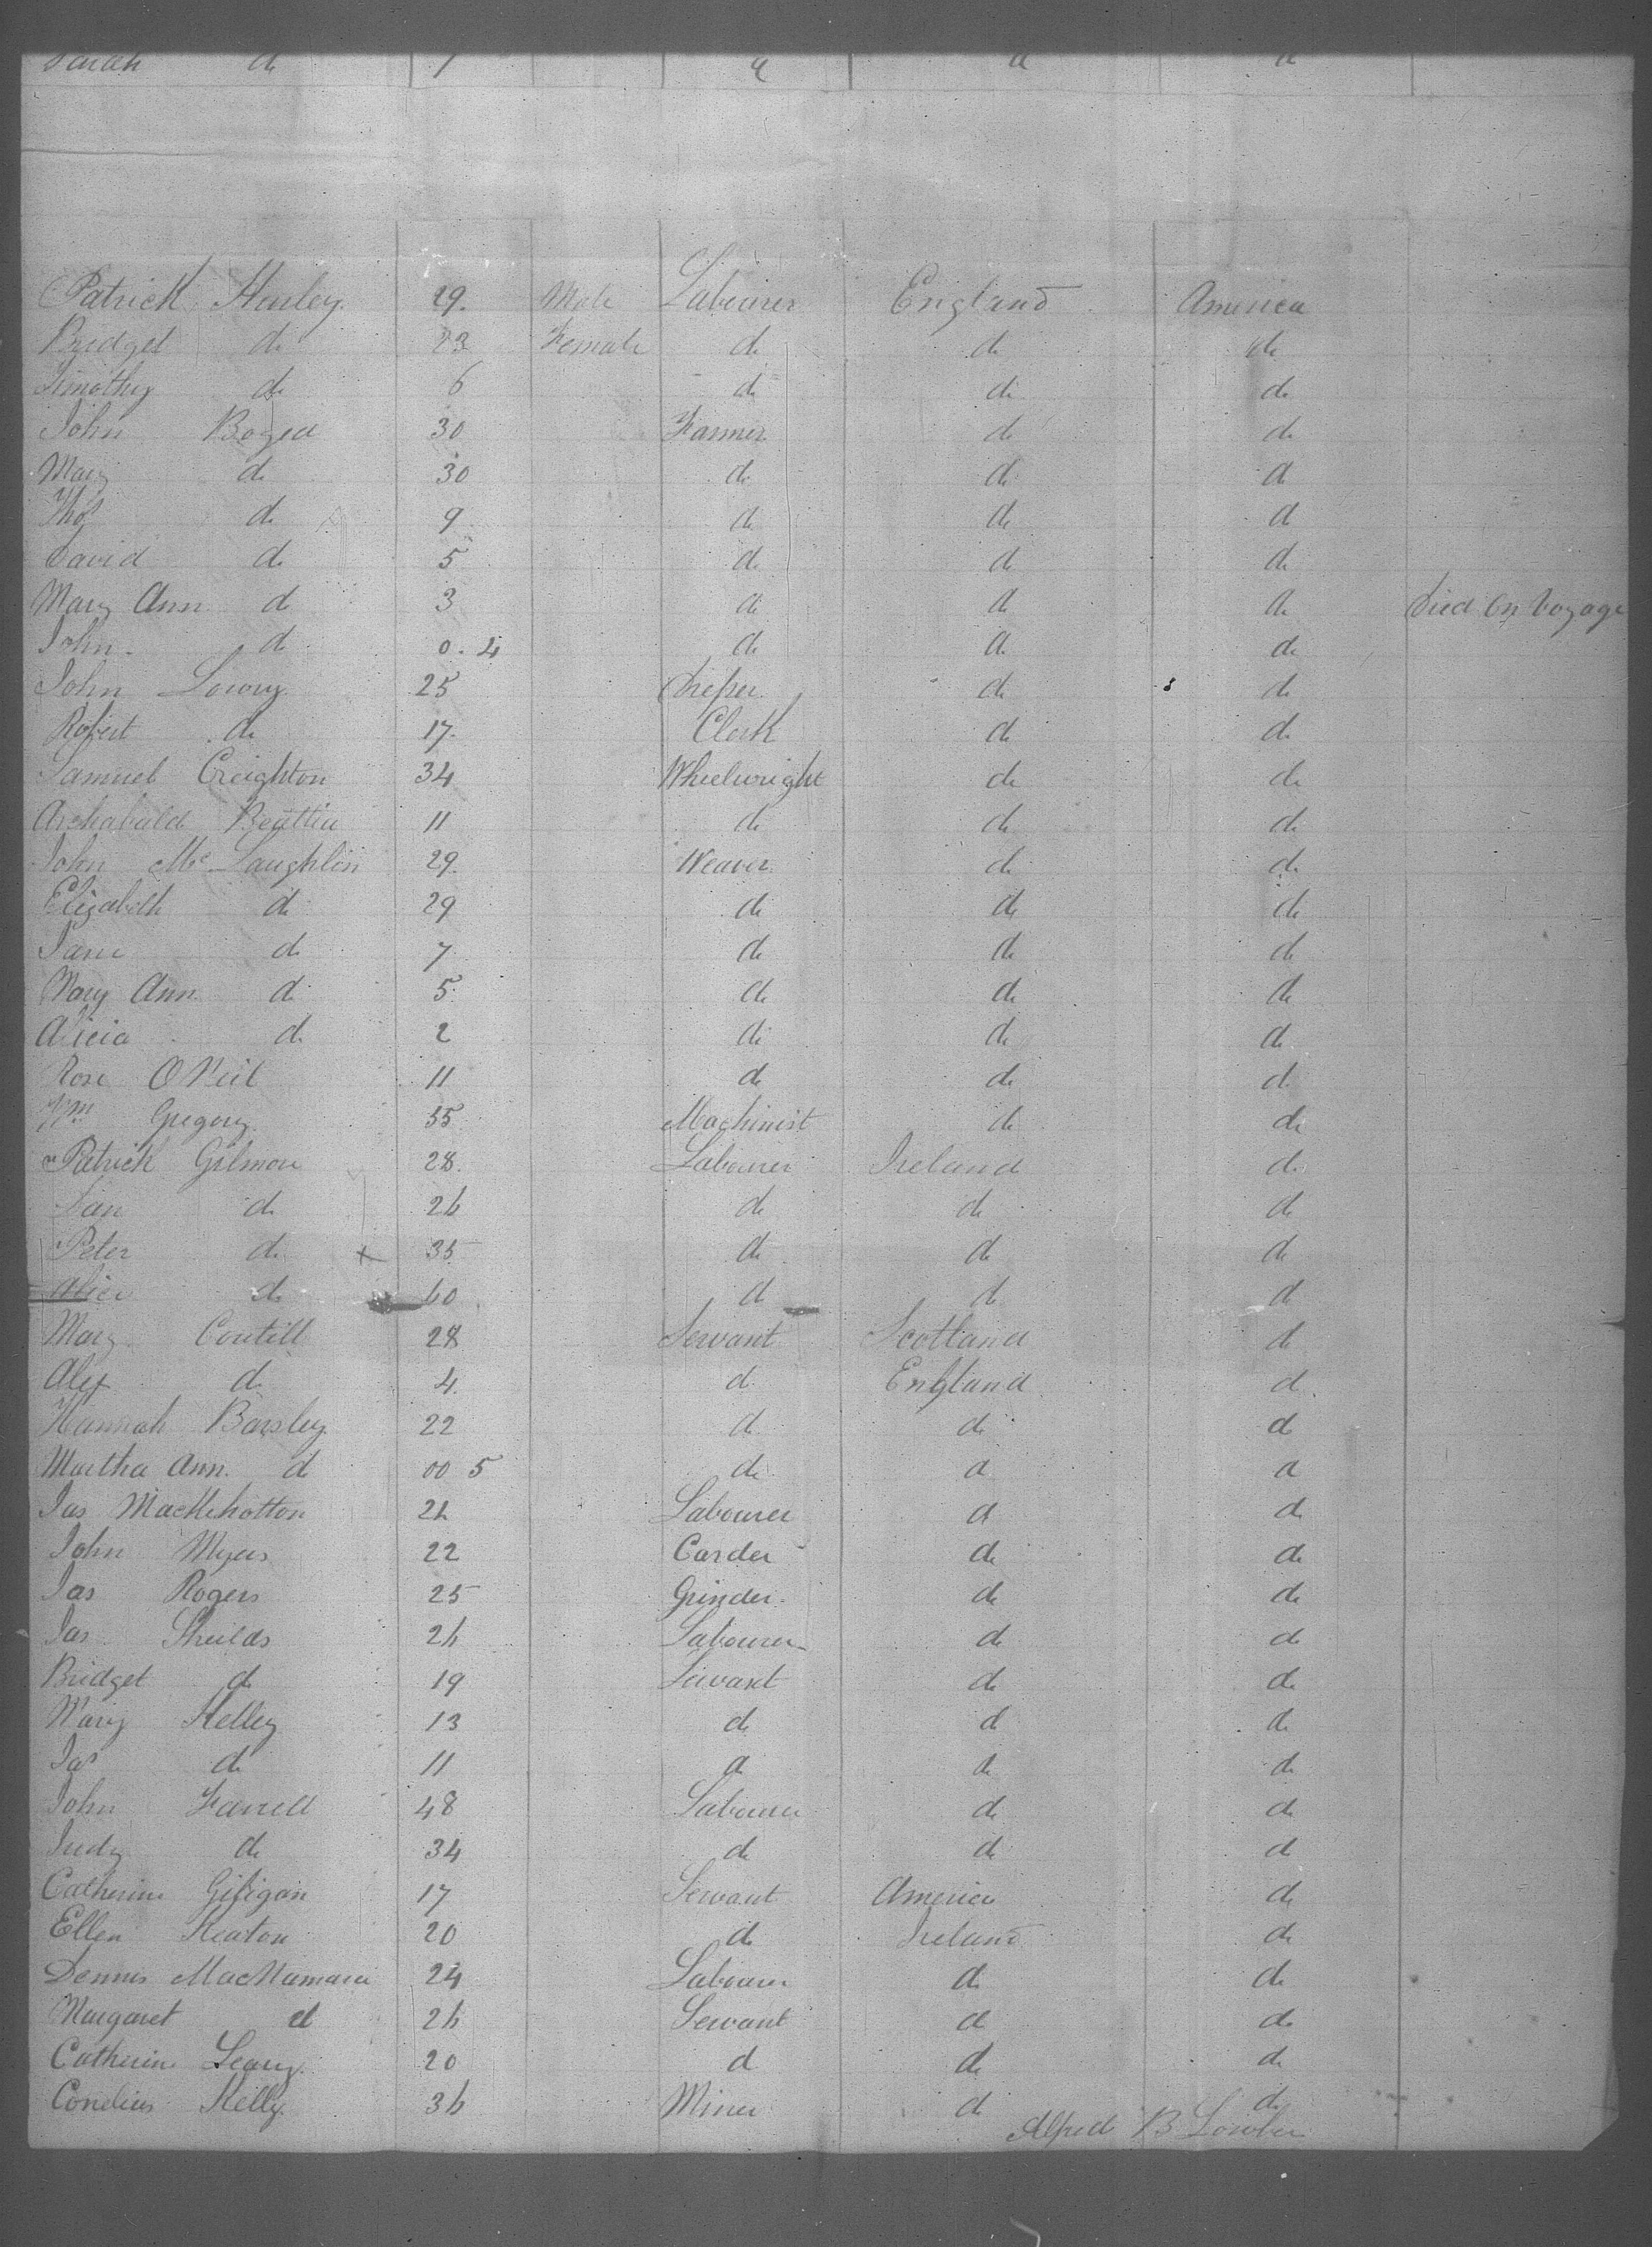 Sarah d 7 d d d
Patrick Henley. 29. Male Labourer England America
Bridget do 23 Female do do do
Timothy do 6 do do do
John 30 Farmer do do
Mary do 30 do do d
Thos do 9 do do d
David do 5 do do do
Mary Ann do 3 do do do Died On Voyage
John. do 0.4 do d. do
John Lowry. 25 do do
Robert do 17. Clerk do do
Samuel Creighton 34 Wheelwright do do
Archabald Beattie 11 do do do
John McLaughlin 29. Weaver do do
Elizabeth do 29 do do do
Jane do 7 do do do
Mary Ann do 5 do do do
Alicia do 2 do do do
Rose ONeil 11 do do d.
Wm Gregory. 55 Machinist do do
Patrick Gilmore 28. Labourer Ireland do
do 26 do do do
Peter do x 35 do do do
Alice do 60 d do d
Mary 28 Servant Scotland do
Alex do 4. d England d.
Hannah Barsley 22 d do d
Martha Ann. d 00 5 do d d
Jas 26 Labourer d do
John Myers 22 Carder do do
Jas Rogers 25 Grinder. do do
Jas Sheilds 26 Labourer do do
Bridget do 19 Servant do do
Mary Kelley 13 do d do
Jas do 11 d do do
John Farrell 48 Labourer do do
Judy do 34 do do d
Catherine Giligan 17 Servant America do
Ellen Keaton 20 do Ireland do
Dennis MacNamara 24 Labourer do do
Margaret d 26 Servant d do
Catherine Leary. 20 d do do
Cornelius Kelly. 36 Miner do do
Alfred B Lowber